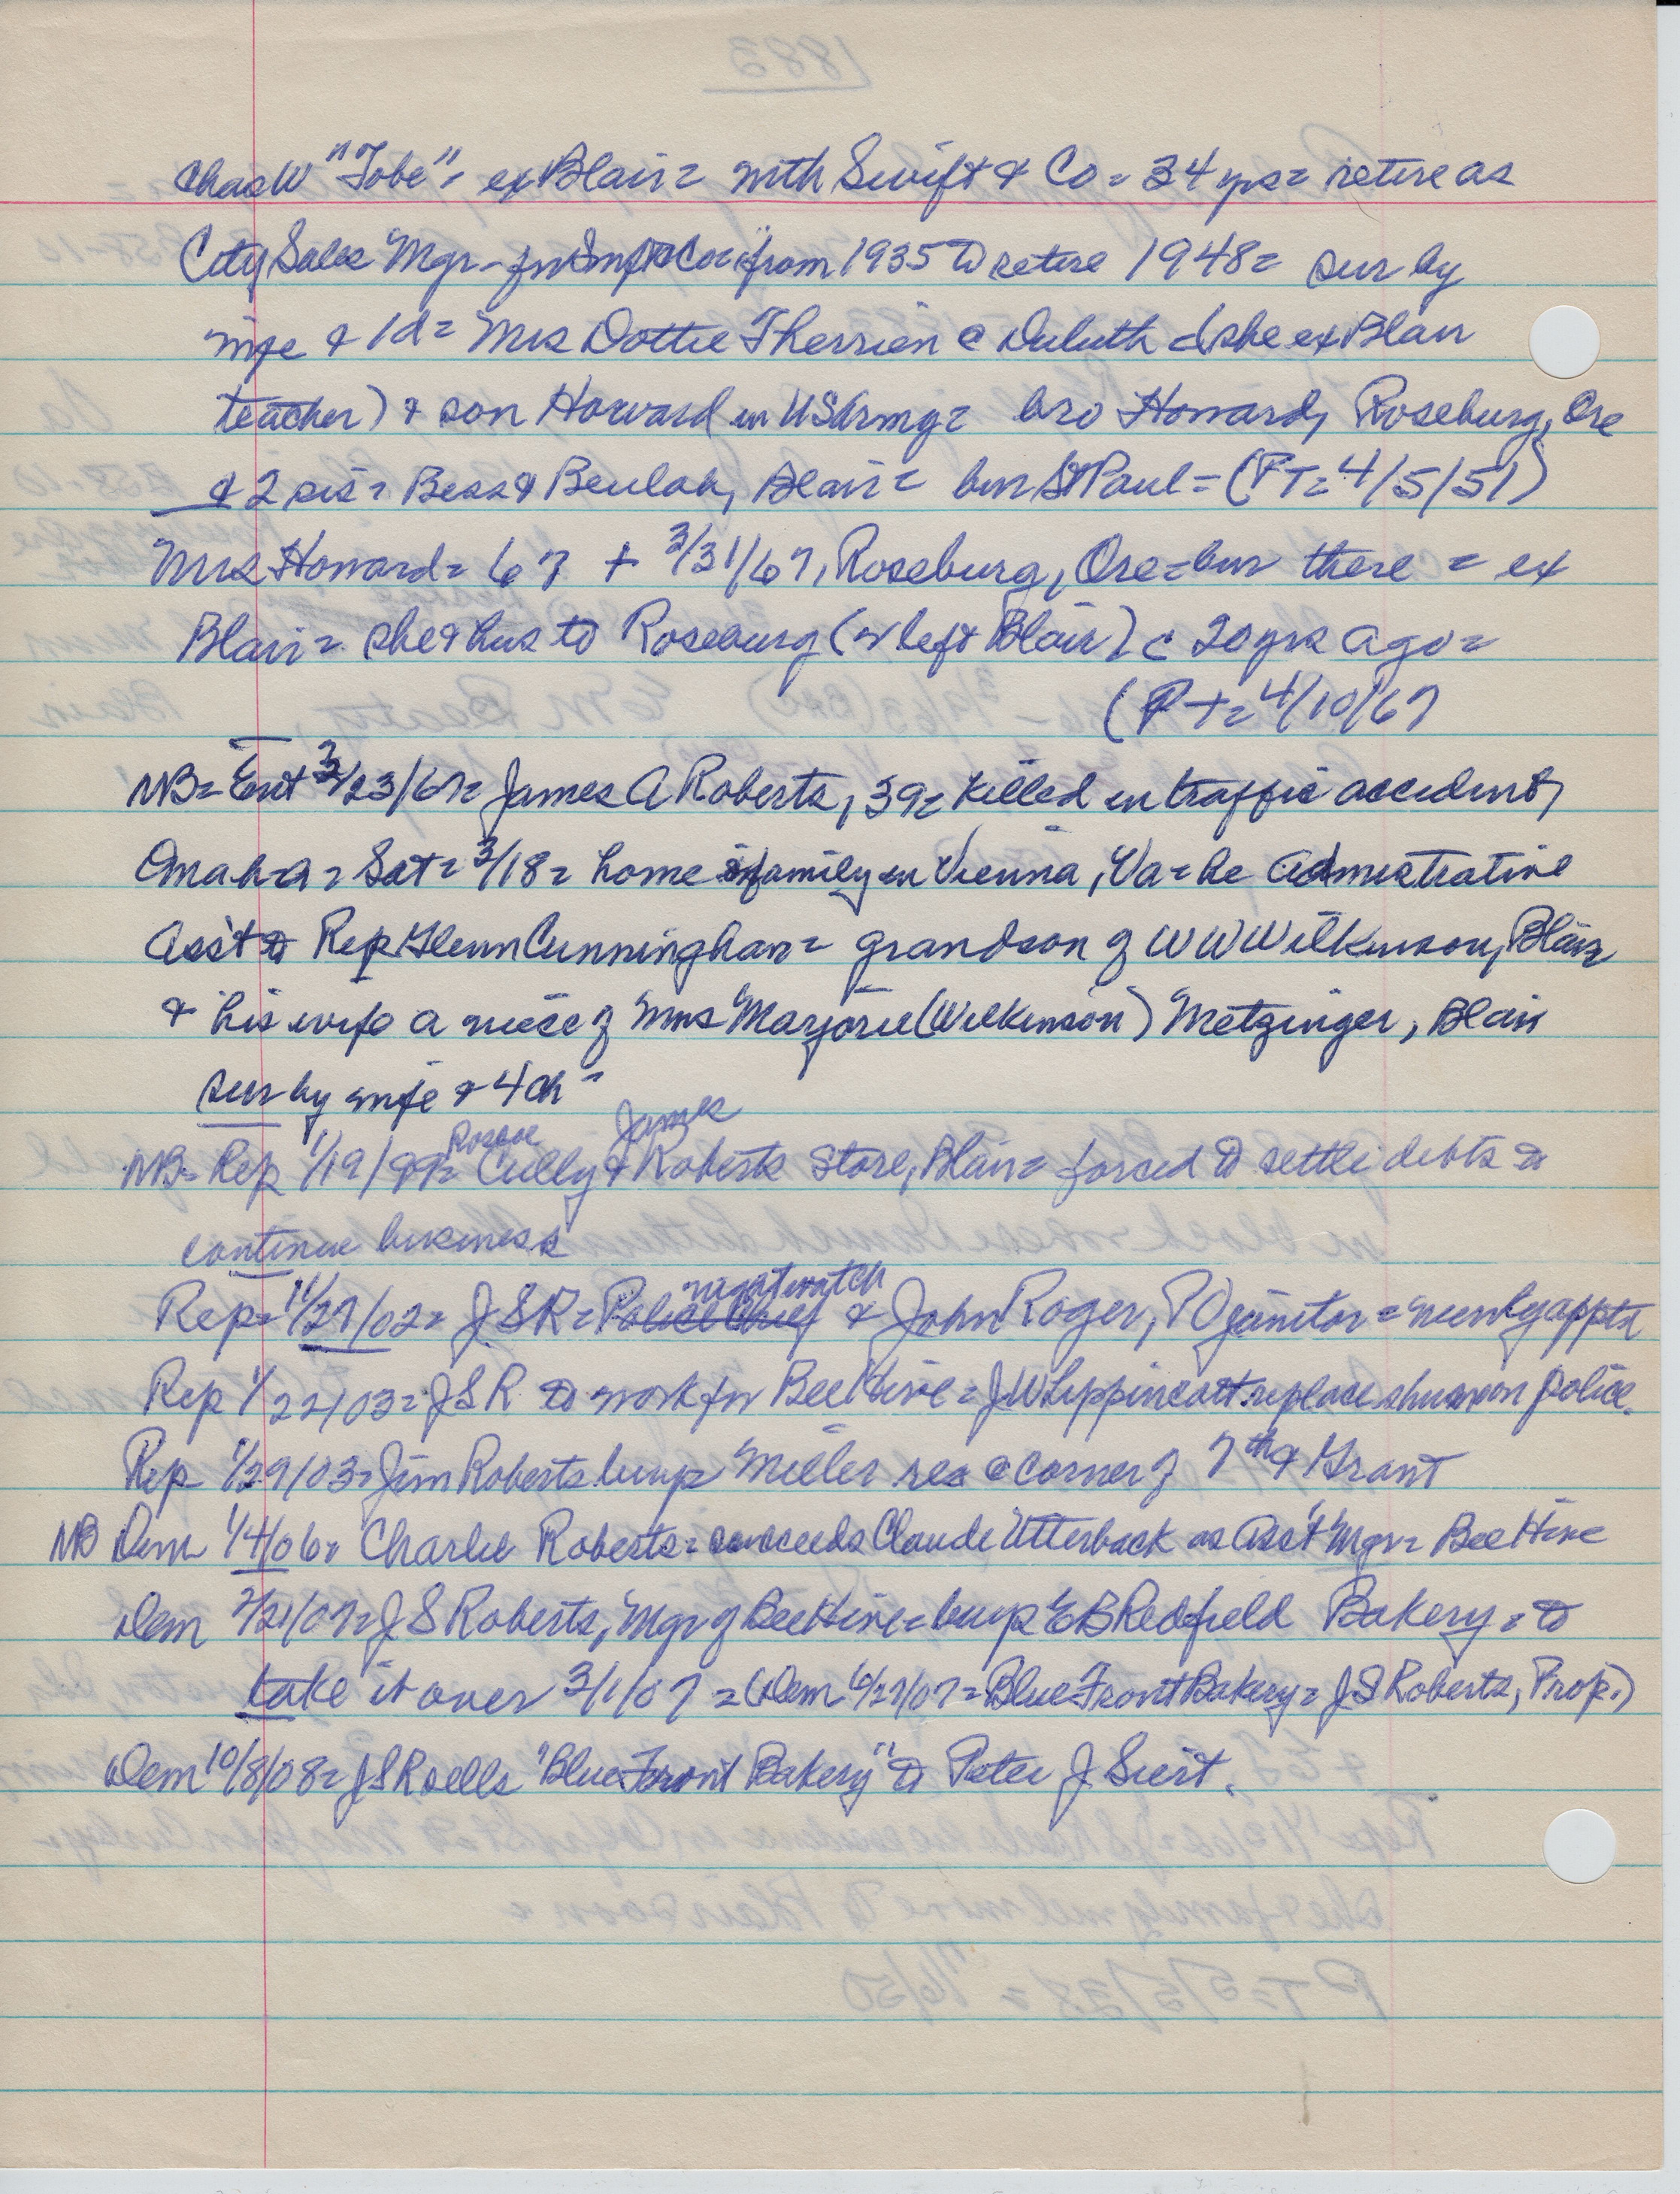 Chas W "Tobe" = ex Blair = with Swift & Co = 34 yrs = retire as
City Sales Mgr - for Swift & Co = from 1935 to retire 1948 = sur by
wife & 1d = Mrs Dottie Therrien @ Duluth (she ex Blair
teacher) & son Howard in US Army = bro Howard, Roseburg, Ore
& 2 sis = Bess & Beulah, Blair = bur St Paul = (PT = 4/5/51)
Mrs Howard = 67 + 3/31/67, Roseburg, Ore = bur there = ex
Blair = she & hus to Roseburg (& left Blair) c 20 yrs ago =
(PT = 4/10/67
NB = Ent 3/23/67 = James A Roberts, 39 = killed in traffic accident,
Omaha = Sat = 3/18 = home & family in Vienna, Va = he Admistrative
Ass't to Rep Glenn Cunningham = grandson of W W Wilkinson, Blair
& his wife a niece of Mrs Marjorie (Wilkinson) Metzinger, Blair
sur by wife & 4 ch =
Roscoe James
NB = Rep 1/19/99 = Cully & Roberts Store, Blair = forced to settle debts to
continue business
nightwatch
Rep = 11/27/02 = J S R = Police Chief & John Roger, PO janitor = newly appt'd
Rep 1/22/03 = J S R to work for Bee Hive = J W Lippincott replace on police.
Rep 1/29/03 = Jim Roberts buys Miller res @ corner of 7th & Grant
NB Dem 1/4/06 = Charlie Roberts = succeeds Claude Utterback as Ass't Mgr = Bee Hive
Dem 2/21/07 = J S Roberts, Mgr of Bee Hive = buys E B Redfield Bakery = to
take it over 3/1/07 = (Dem 6/27/07 = Blue Front Bakery = J S Roberts, Prop.)
Dem 10/8/08 = J S R sells "Blue Front Bakery" to Peter J Siert.